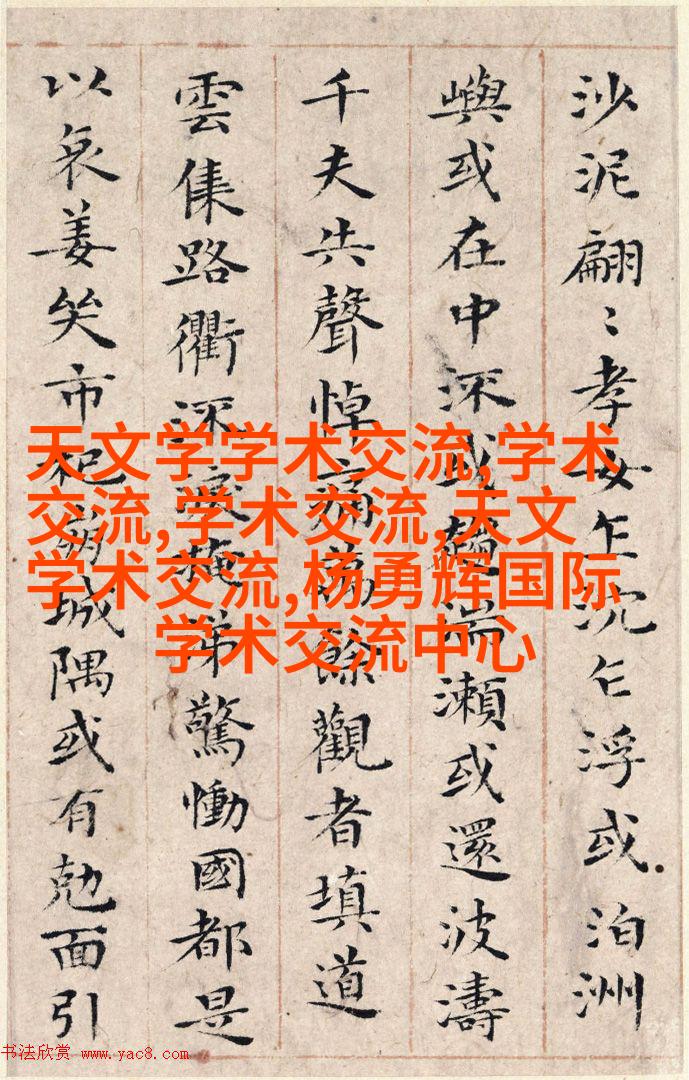 沙泥翩〻孝女乍沈乍浮或泊洲
嶼或在中流或趨湍瀨或還波濤
千夫共聲悼痛萬餘觀者填道
雲集路衢流淚掩涕驚慟國都是
以哀姜哭市杞崩城隅或有勊面引
天文学学术交流,学术
交流,学术交流,天文
学术交流,杨勇辉国际
学术交流中心
书法欣赏 www.yac8.com